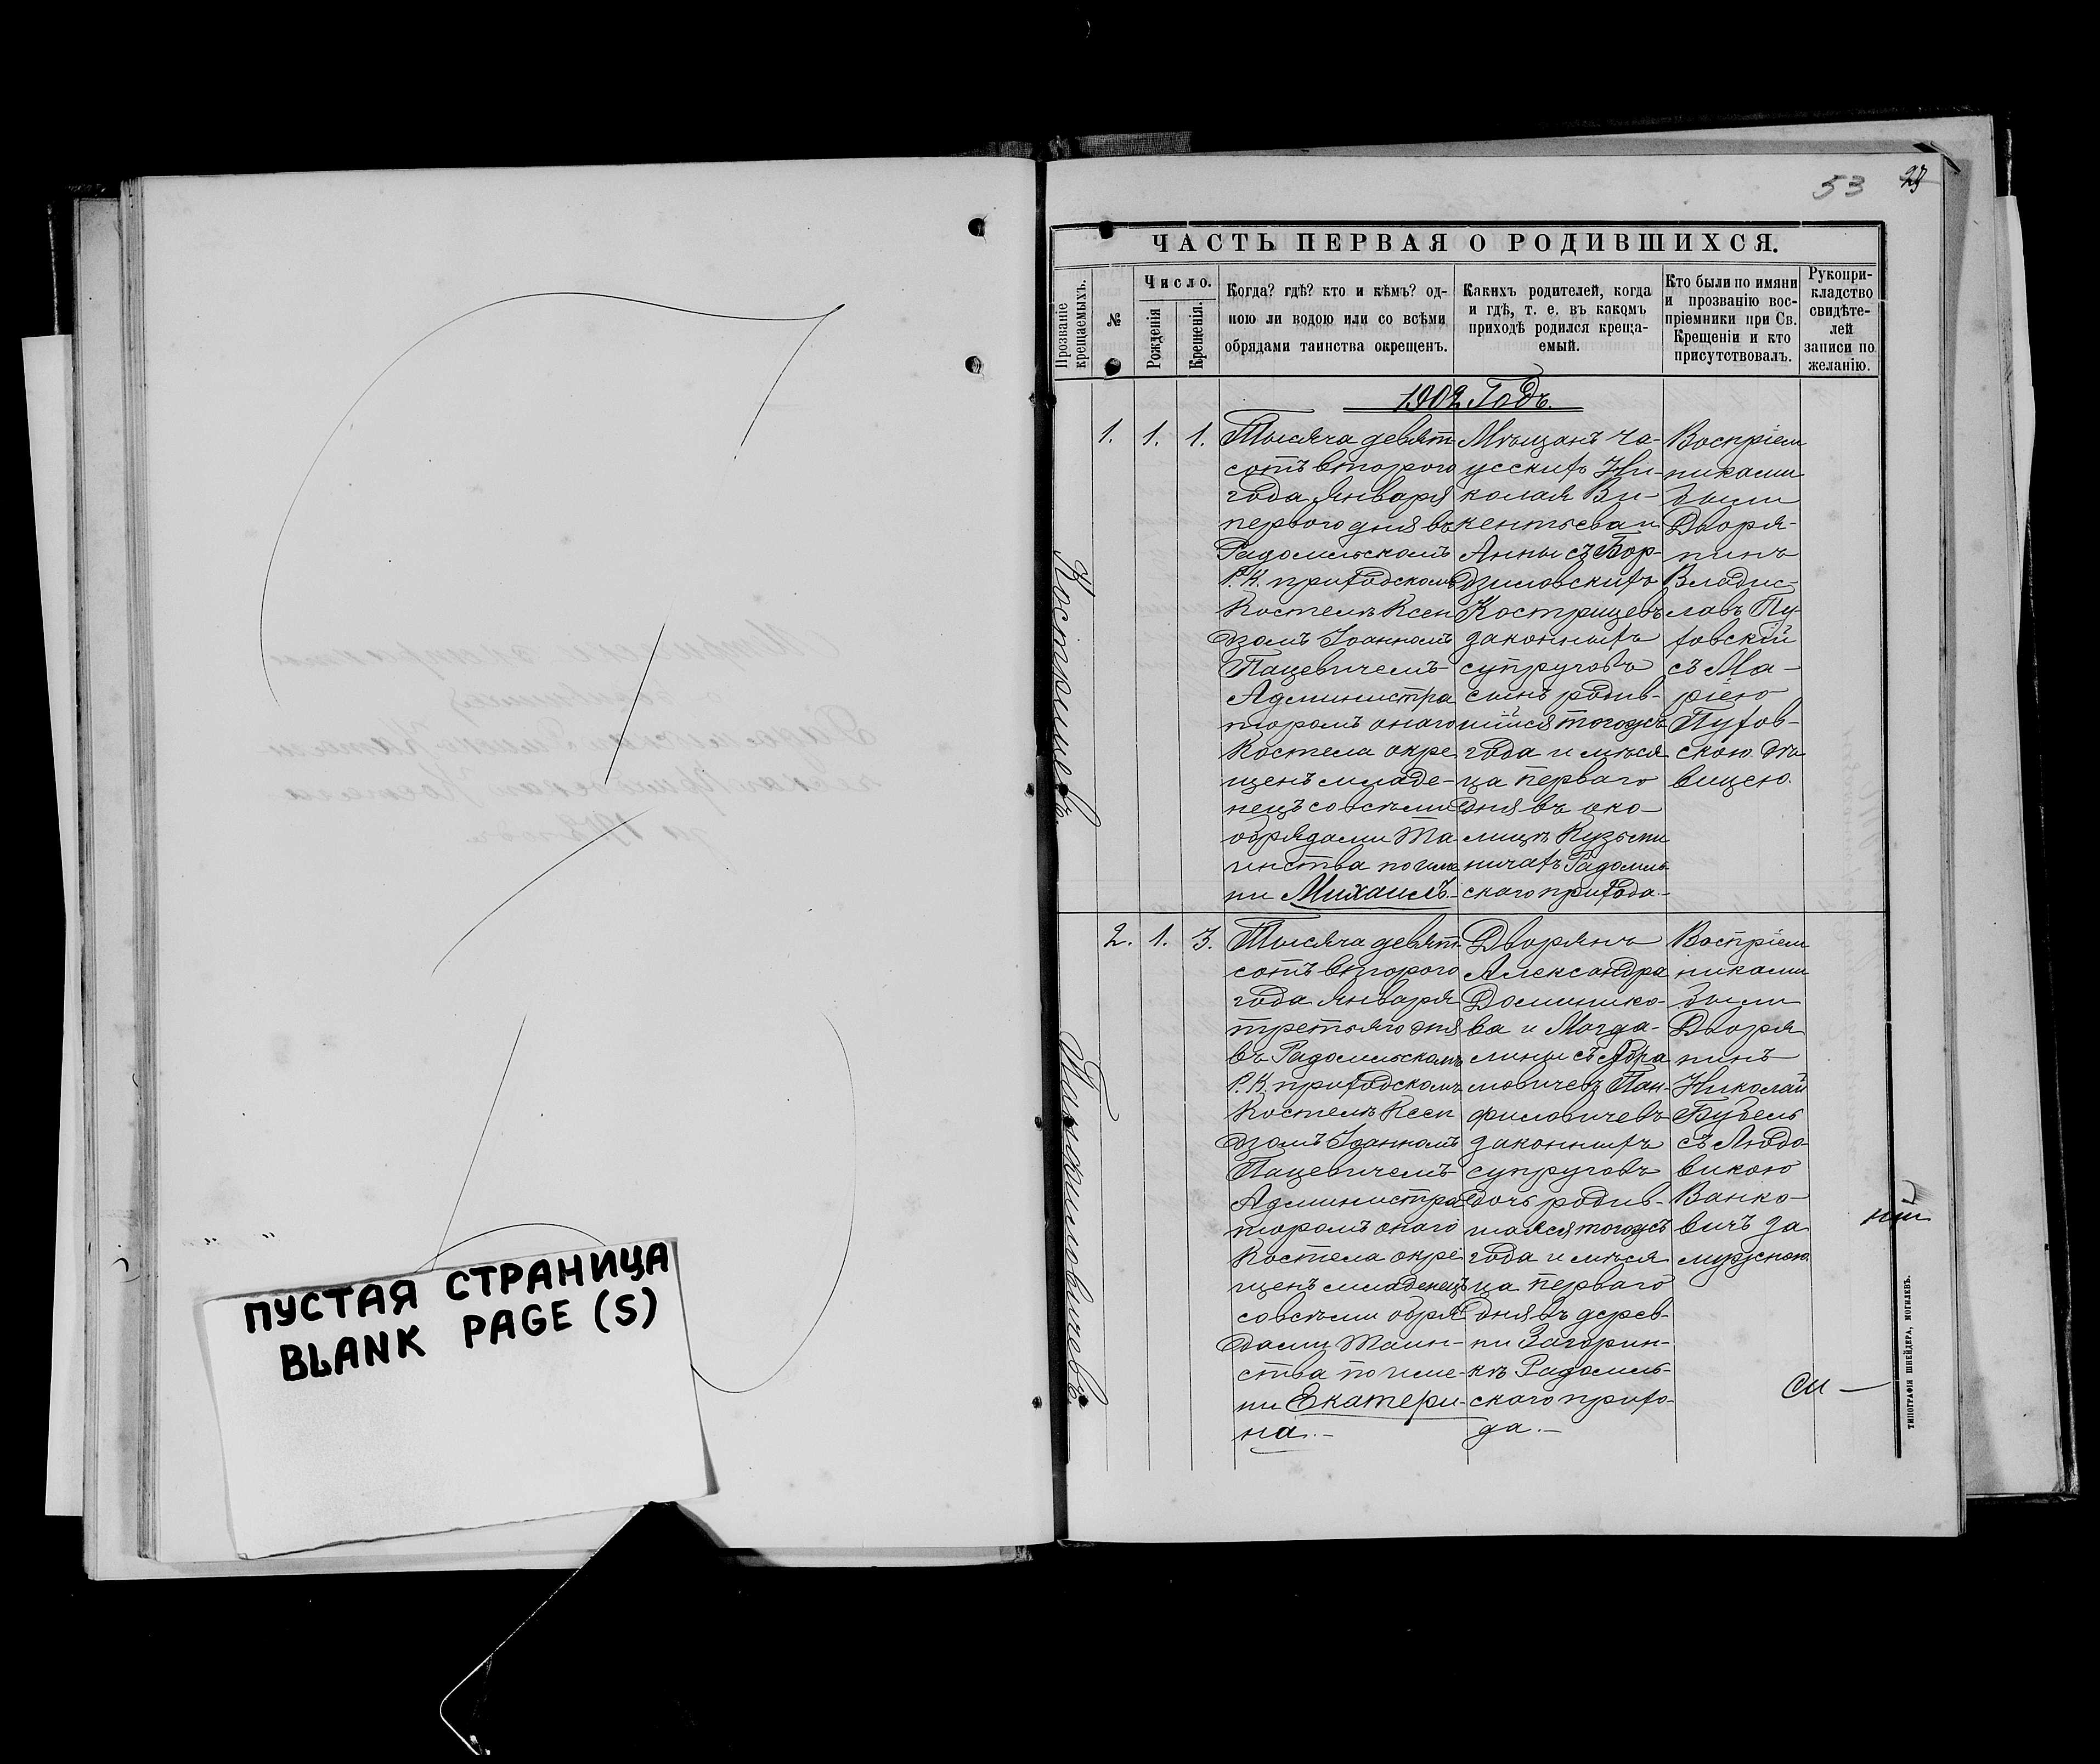 ПУСТАЯ СТРАНИЦА
BLANK PAGE (S)
53
ЧАСТЬ ПЕРВАЯ О РОДИВШИХСЯ.
Прозваніе крещаемыхъ.
№
Число.
Рожденія
Крещенія.
Когда? гдѣ? кто и кѣмъ? од-
ною ли водою или со всѣми
обрядами таинства окрещенъ.
Какихъ родителей, когда
и гдѣ, т. е. въ какомъ
приходѣ родился креща-
емый.
Кто были по имяни
и прозванію вос-
пріемники при Св.
Крещеніи и кто
присутствовалъ.
Рукопри-
кладство
свидѣте-
лей
записи по
желанію.
1902 Годъ.
Кострицевъ.
1.
1.
1.
Тысяча девят
сотъ второго
года Января
первого дня въ
Радомльскомъ
Р. К. приходскомъ
Костелѣ Ксен
дзомъ Іоанномъ
Пацевичемъ
Администра
торомъ онаго
Костела окре
щенъ младе-
нецъ со всѣми
обрядами Та
инства по име
ни Михаилъ.-
Мѣщанъ Ча-
усскихъ Ни-
колая Ви-
кентьева и
Анны съ Бор-
дзиловскихъ
Кострицевъ
законныхъ
супруговъ
сынъ родив-
шійся тогожъ
года и мѣся
ца перваго
дня въ око-
лицѣ Кузьми
ничахъ Радомль
скаго прихода.-
Воспріем
никами
были
Дворя-
нинъ
Владис-
лавъ Пу-
ховскій
съ Ма-
ріею
Пухов-
скою дѣ
вицею.
Панфиловичевъ.
2.
1.
3.
Тысяча девят-
сотъ второго
года Января
третьяго дня
въ Радомльскомъ
Р. К. приходскомъ
Костелѣ Ксен
дзомъ Іоанномъ
Пацевичемъ
Администра
торомъ онаго
Костела окре
щенъ младенецъ
со всѣми обря
дами Таин-
ства по име-
ни Екатери-
на.-
Дворянъ
Александра
Доминико-
ва и Магда-
лины съ Абра
мовичевъ Пан-
филовичевъ
законныхъ
супруговъ
дочь родив-
шаяся тогожъ
года и мѣся
ца перваго
дня въ дерев-
ни Загорин-
кѣ Радомль-
скаго прихо-
да.-
Воспріем
никами
были
Дворя
нинъ
Николай
Бубель
съ Людо
викою
Ванко-
вичъ за
мужнюю.
ТИПОГРАФІЯ ШНЕЙДЕРА, МОГИЛЕВЪ.